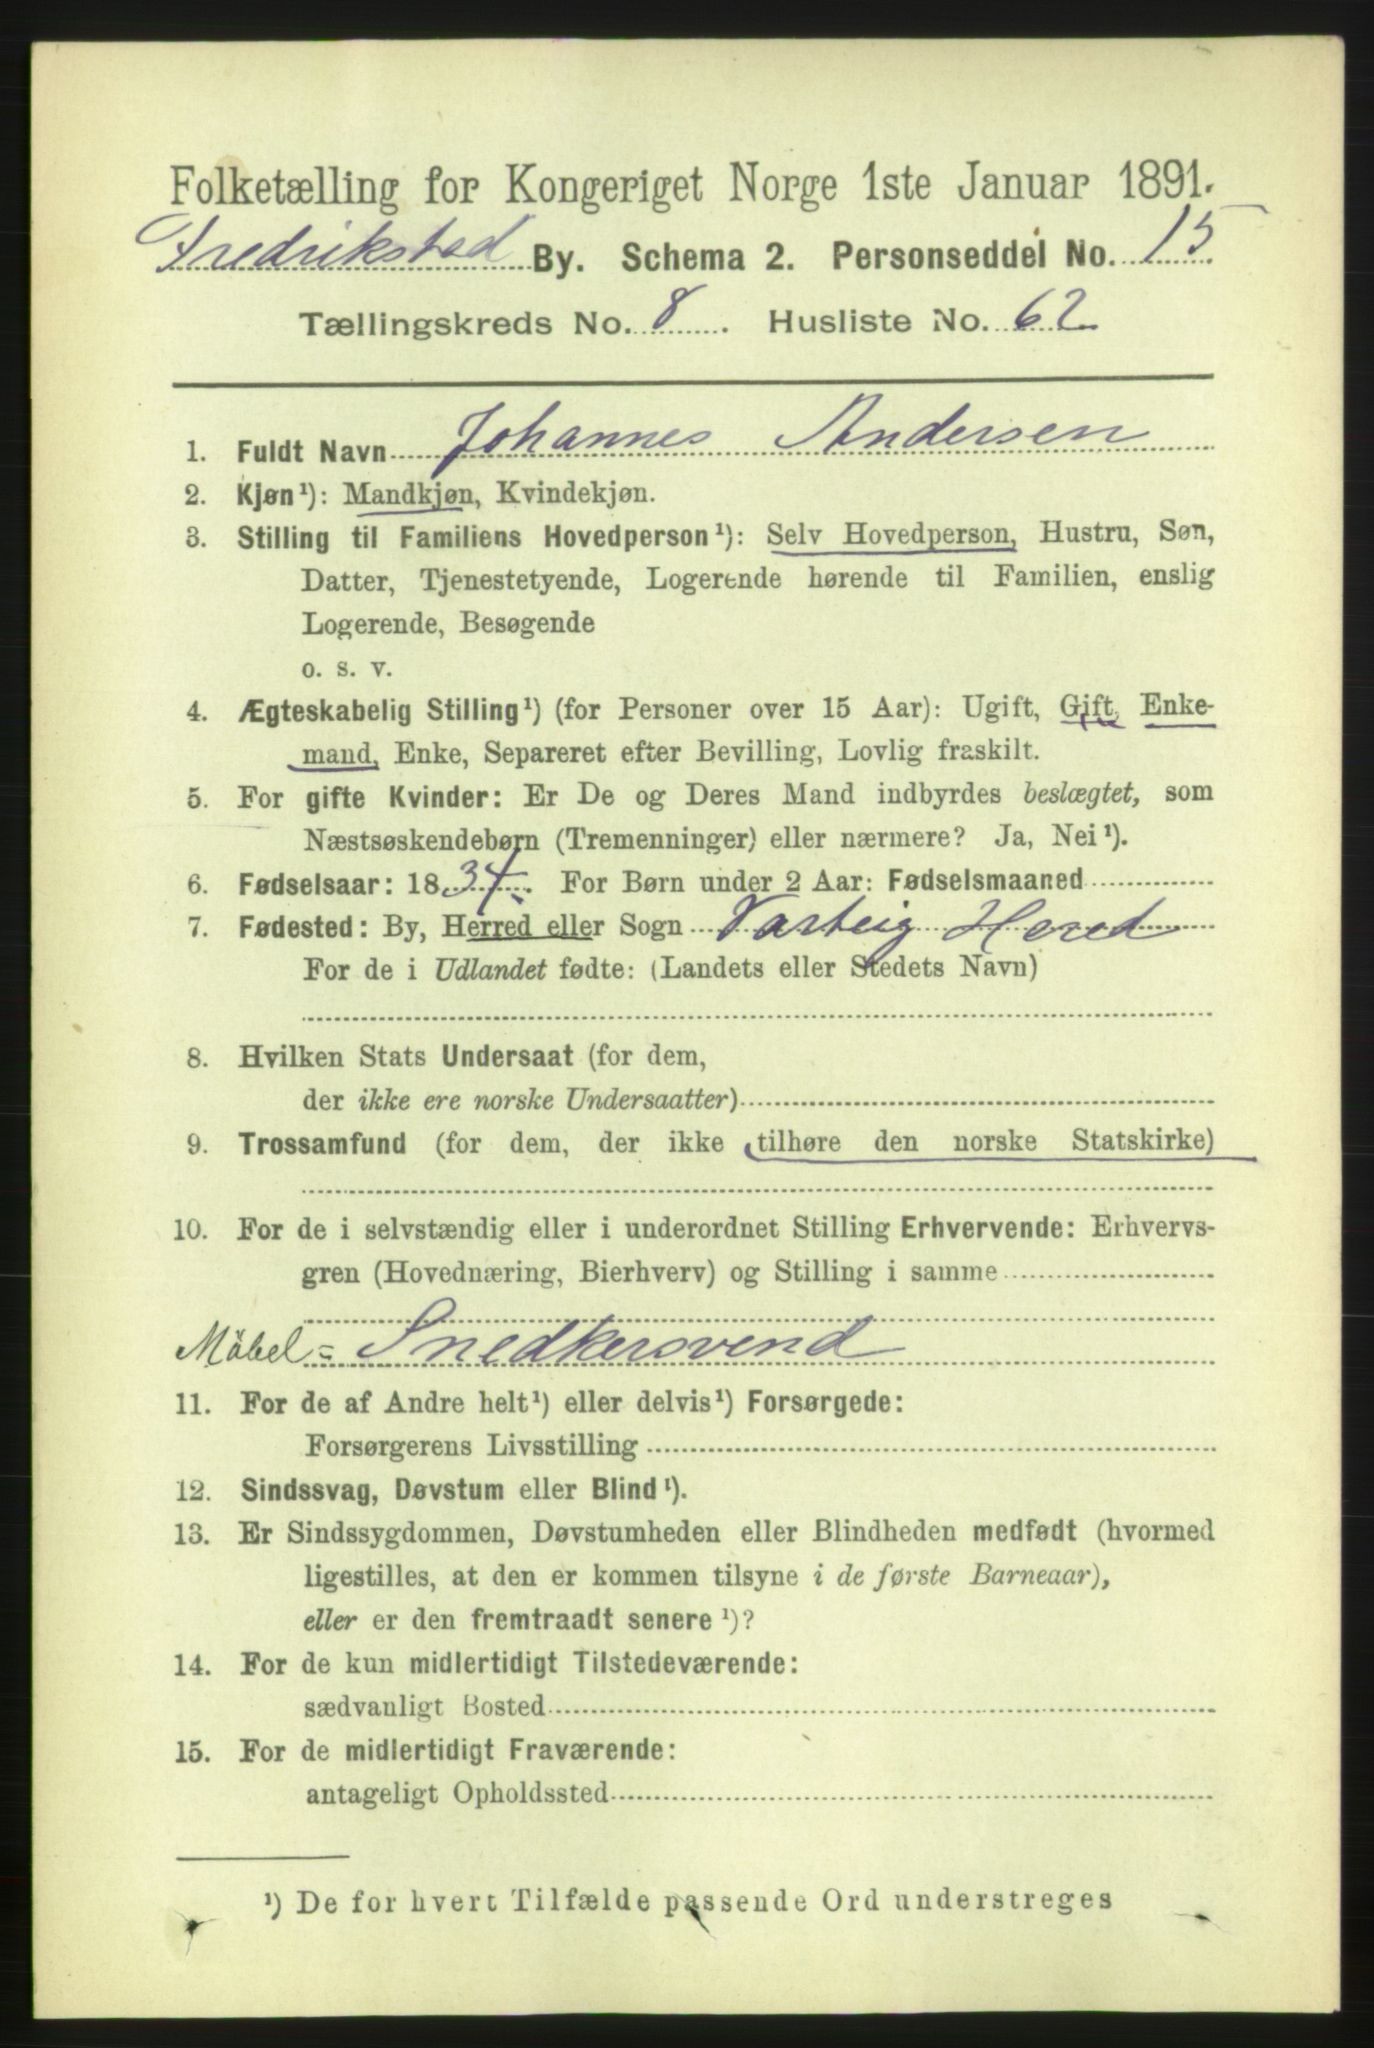 Folketælling for Kongeriget Norge 1ste Januar 1891.
Fredrikstad By. Schema 2. Personseddel No. 15
Tællingskreds No. 8. Husliste No. 62
1. Fuldt Navn Johannes Andersen
2. Kjøn¹): Mandkjøn, Kvindekjøn.
3. Stilling til Familiens Hovedperson¹): Selv Hovedperson, Hustru, Søn,
Datter, Tjenestetyende, Logerende hørende til Familien, enslig
Logerende, Besøgende
o. s. v.
4. Ægteskabelig Stilling¹) (for Personer over 15 Aar): Ugift, Gift, Enke-
mand, Enke, Separeret efter Bevilling, Lovlig fraskilt.
5. For gifte Kvinder: Er De og Deres Mand indbyrdes beslægtet, som
Næstsøskendebørn (Tremenninger) eller nærmere? Ja, Nei¹).
6. Fødselsaar: 1834. For Børn under 2 Aar: Fødselsmaaned
7. Fødested: By, Herred eller Sogn Varteig Hered
For de i Udlandet fødte: (Landets eller Stedets Navn)
8. Hvilken Stats Undersaat (for dem,
der ikke ere norske Undersaatter)
9. Trossamfund (for dem, der ikke tilhøre den norske Statskirke)
10. For de i selvstændig eller i underordnet Stilling Erhvervende: Erhvervs-
gren (Hovednæring, Bierhverv) og Stilling i samme
Möbel = Snedkersvend
11. For de af Andre helt¹) eller delvis¹) Forsørgede:
Forsørgerens Livsstilling
12. Sindssvag, Døvstum eller Blind¹).
13. Er Sindssygdommen, Døvstumheden eller Blindheden medfødt (hvormed
ligestilles, at den er kommen tilsyne i de første Barneaar),
eller er den fremtraadt senere¹)?
14. For de kun midlertidigt Tilstedeværende:
sædvanligt Bosted
15. For de midlertidigt Fraværende:
antageligt Opholdssted
¹) De for hvert Tilfælde passende Ord understreges